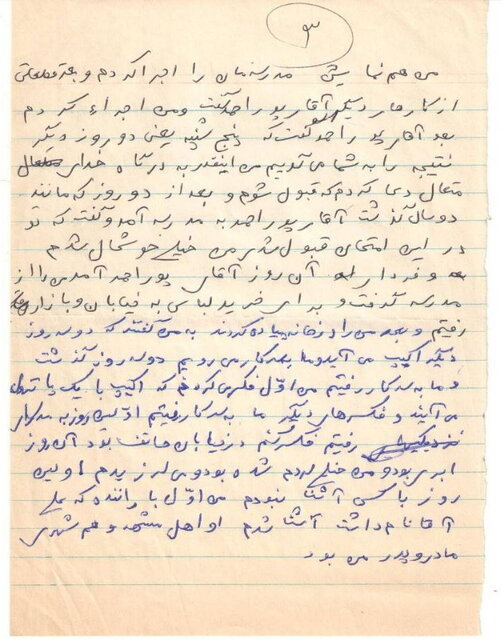 ۳
من هم نمایش مدرسه مان را اجرا کردم و بعد قطعاتی
از کارهای دیگر آقای پوراحمد گفت و من اجراء کردم
بعد آقای پوراحمد گفت که پنج شنبه یعنی دو روز دیگر
نتیجه را به شما می گویم من اینقدر به درگاه خدای
متعال دعا کردم که قبول شوم و بعد از دو روز که مانند
دو سال گذشت آقای پوراحمد به مدرسه آمد و گفت که تو
در این امتحان قبول شدی من خیلی خوشحال شدم
و فردای آن روز آقای پوراحمد آمد من را از
مدرسه گرفت و برای خرید لباس به خیابان و بازار
رفتیم و بعد من را در خانه پیاده کردند به من گفتند که دو سه روز
دیگر اکیپ می آید و ما بعد کار می رویم دو سه روز گذشت
و ما به سر کار رفتیم من اوّل فکر می کردم که اکیپ با یک پا
می آیند و فکرهای دیگر ما به سر کار رفتیم اوّلین روز به
رفتیم فکر کنم در خیابان حاتف بود آن روز
ابری بود و من خیلی سردم شده بود و می لرزیدم اولین
روز با کسی آشنا نبودم من اوّل با راننده که علی
آقا نام داشت آشنا شدم او اهل و هم شهری
مادر و پدر من بود